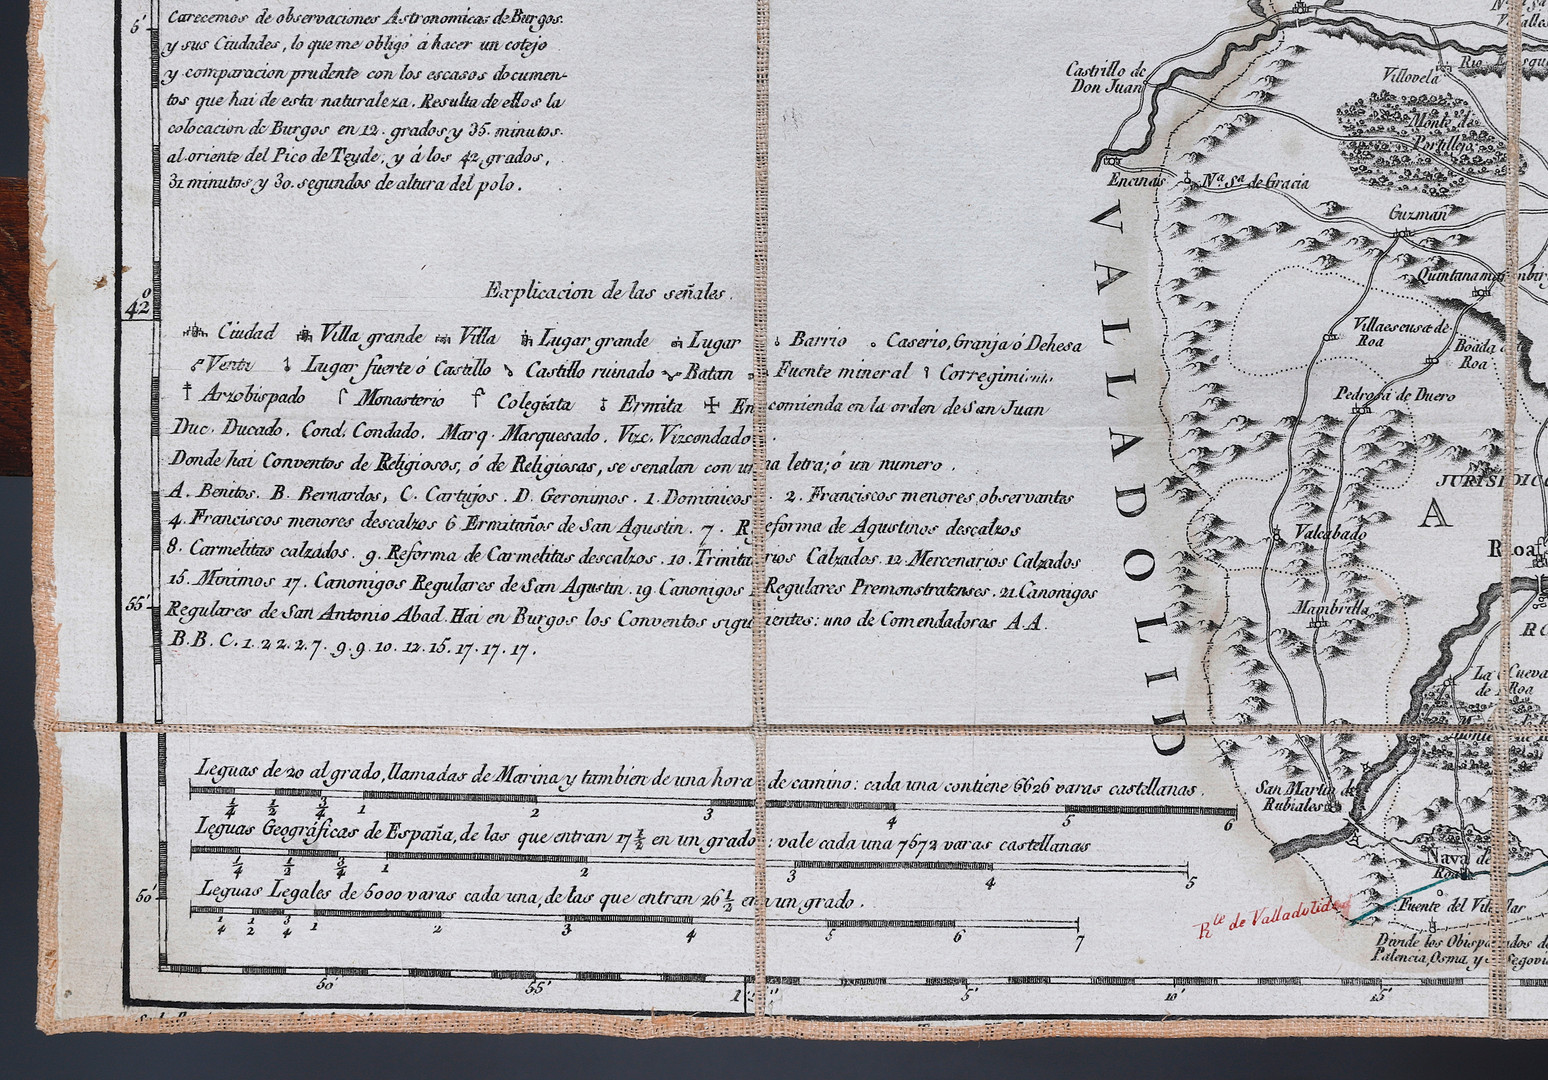 Carecemos de observaciones Astronomicas de Burgos.
y sus Ciudades, lo que me obligó á hacer un cotejo
y comparacion prudente con los escasos documen-
tos que hai de esta naturaleza. Resulta de ellos la
colocacion de Burgos en 12. grados y 35. minutos.
al oriente del Pico de Teyde, y á los 42 grados,
31 minutos y 30. segundos de altura del polo.
Explicacion de las señales.
Ciudad Villa grande Villa Lugar grande Lugar Barrio Caserio, Granja ó Dehesa
Venta Lugar fuerte ó Castillo Castillo ruinado Batan Fuente mineral Corregimiento
Arzobispado Monasterio Colegiata Ermita Encomienda en la orden de San Juan
Duc. Ducado. Cond. Condado. Marq. Marquesado. Vizc. Vizcondado.
Donde hai Conventos de Religiosos, ó de Religiosas, se senalan con una letra; ó un numero.
A. Benitos. B. Bernardos, C. Cartujos. D. Geronimos. 1. Dominicos. 2. Franciscos menores observantes
4. Franciscos menores descalzos 6 Ermitaños de San Agustin. 7. Reforma de Agustinos descalzos
8. Carmelitas calzados. 9. Reforma de Carmelitas descalzos. 10. Trinitarios Calzados. 12. Mercenarios Calzados
15. Minimos 17. Canonigos Regulares de San Agustin. 19 Canonigos Regulares Premonstratenses. 21. Canonigos
Regulares de San Antonio Abad. Hai en Burgos los Conventos siguientes: uno de Comendadoras A.A.
B.B. C. 1. 2 2. 2. 7. 9. 9. 10. 12. 15. 17. 17. 17.
Leguas de 20 al grado, llamadas de Marina y tambien de una hora de camino: cada una contiene 6626 varas castellanas.
1/4 1/2 3/4 1 2 3 4 5 6
Leguas Geográficas de España, de las que entran 17 1/2 en un grado: vale cada una 7572 varas castellanas
1/4 1/2 3/4 1 2 3 4 5
Leguas Legales de 5000 varas cada una, de las que entran 26 1/2 en un grado.
1/4 1/2 3/4 1 2 3 4 5 6 7
5'
42°
55'
50'
50' 55' 1 5' 10' 15'
Castrillo de
Don Juan
Villovela
Rio
Monte de
Portillejo
Encinas
Nª. Sª. de Gracia
Guzmán
VALLADOLID
Villaescusa de
Roa
Boada de
Roa
Pedrosa de Duero
A
Valcabado
Roa
Mambrilla
La Cueva
de Roa
San Martin de
Rubiales
Nava de
Roa
Fuente del Villar
Rte de Valladolid
Divide los Obispados de
Palencia, Osma y Segovia